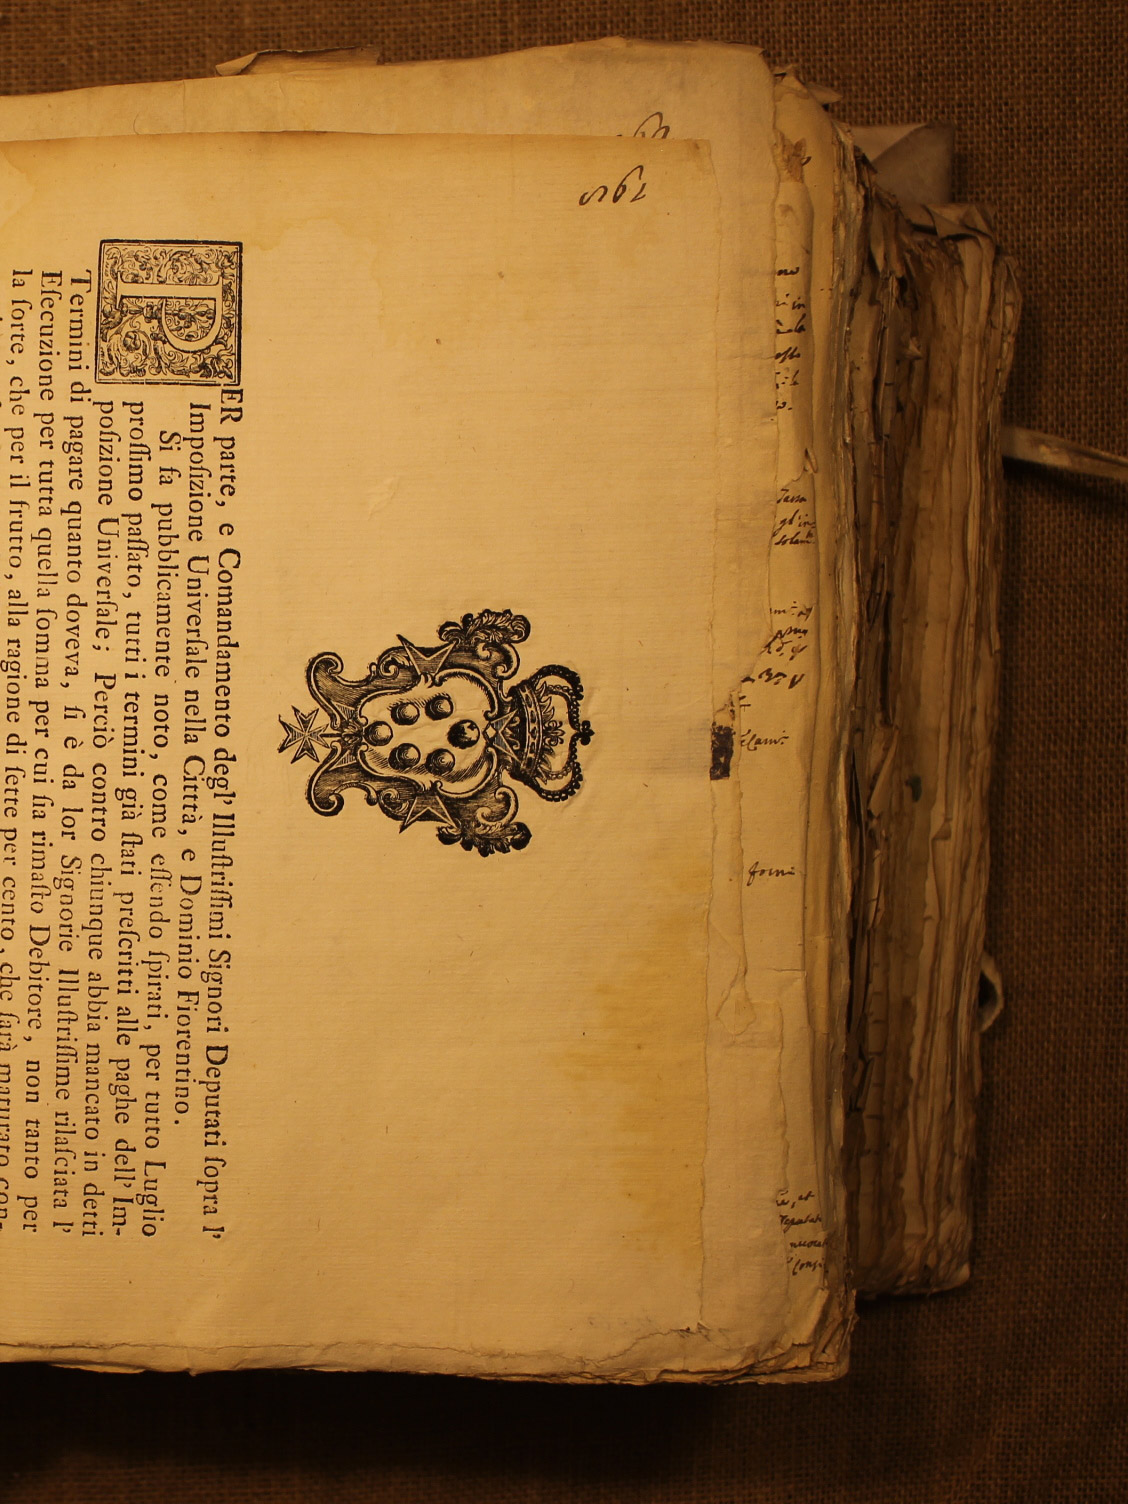 198
PER parte, e Comandamento degl' Illuſtriſſimi Signori Deputati ſopra l'
Impoſizione Univerſale nella Citttà, e Dominio Fiorentino.
Si fa pubblicamente noto, come eſſendo ſpirati, per tutto Luglio
proſſimo paſſato, tutti i termini già ſtati preſcritti alle paghe dell' Im-
poſizione Univerſale; Perciò contro chiunque abbia mancato in detti
Termini di pagare quanto doveva, ſi è da lor Signorie Illuſtriſſime rilaſciata l'
Eſecuzione per tutta quella ſomma per cui ſia rimaſto Debitore, non tanto per
la ſorte, che per il frutto, alla ragione di ſette per cento, che ſarà maturato con-